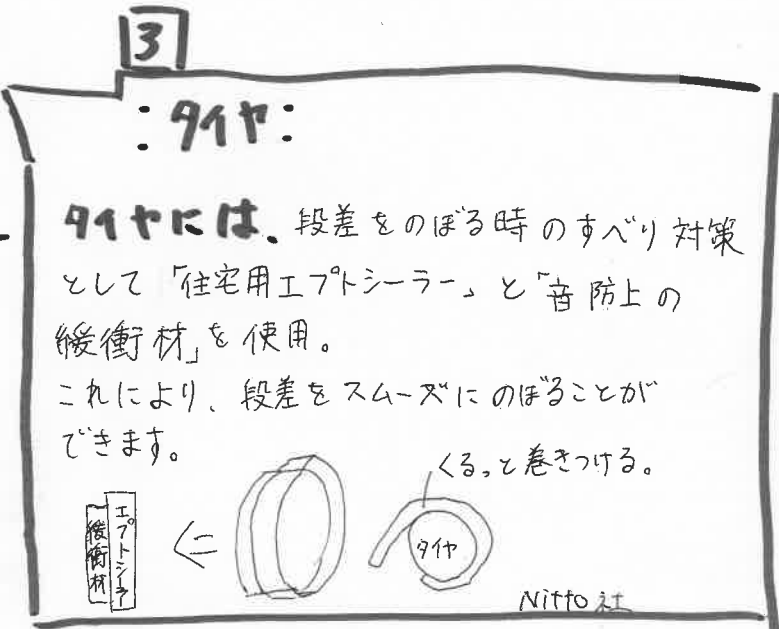 3
:タイヤ:
タイヤには、段差をのぼる時のすべり対策
として「住宅用エプトシーラー」と「音防上の
緩衝材」を使用。
これにより、段差をスムーズにのぼることが
できます。
くるっと巻きつける。
エプトシーラー
緩衝材
タイヤ
Nitto社